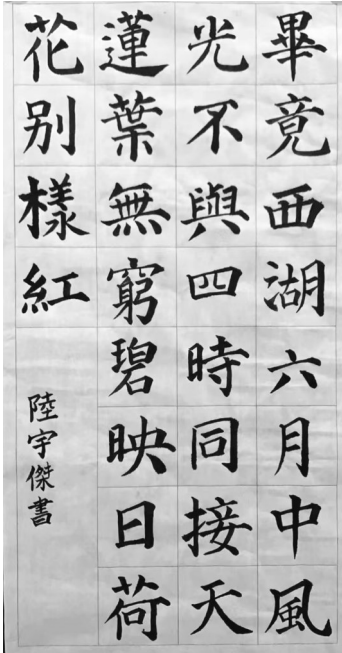 畢竟西湖六月中風
光不與四時同接天
蓮葉無窮碧映日荷
花别樣紅
陸宇傑書